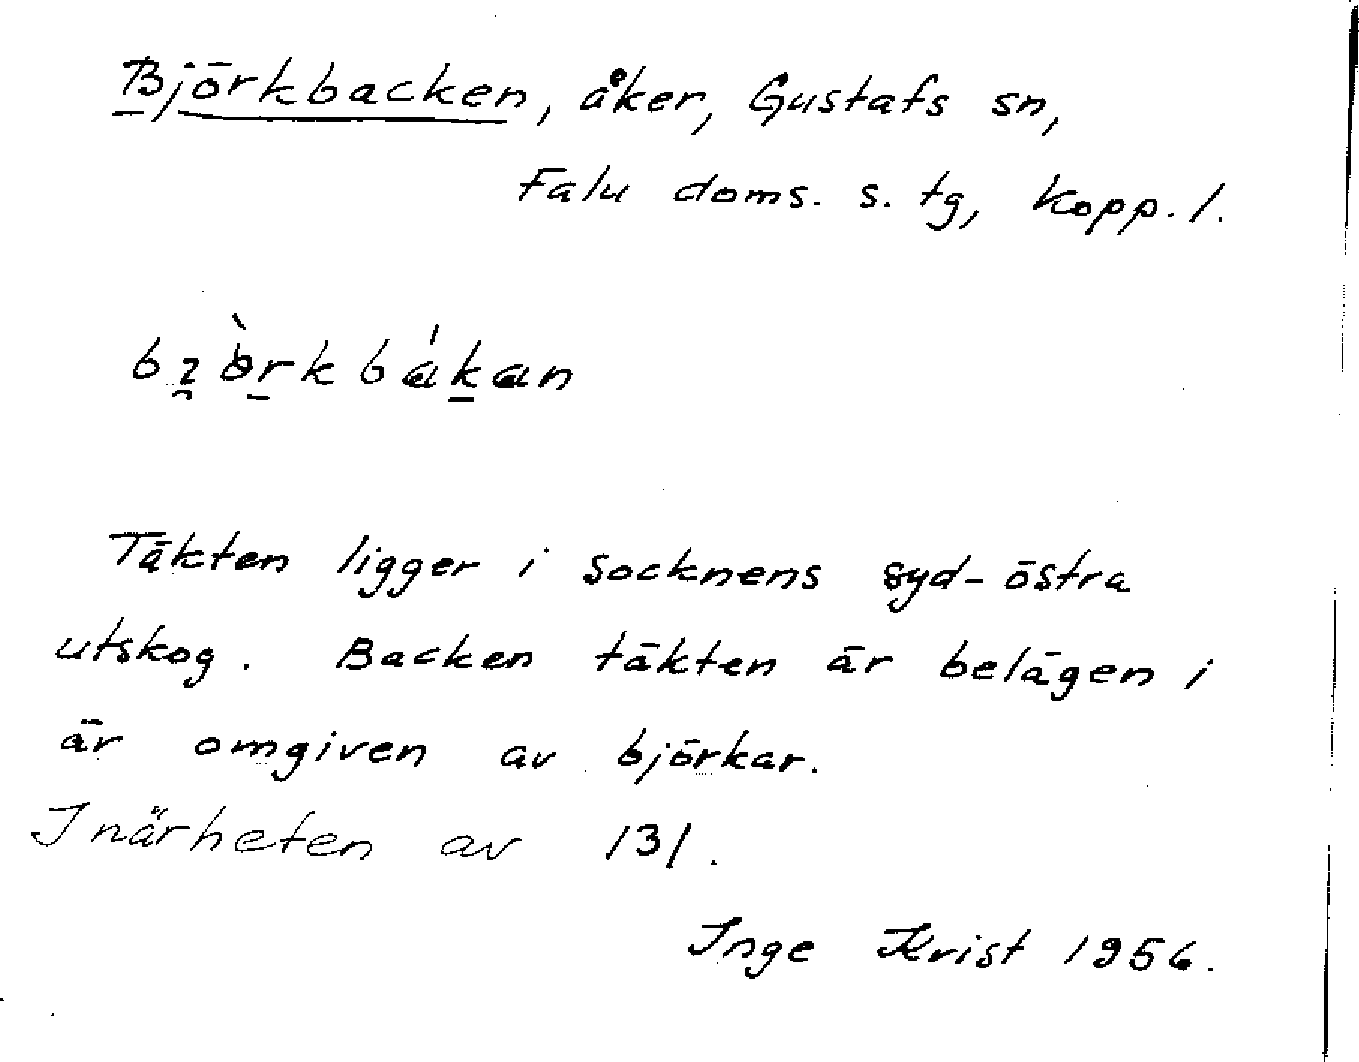 Björkbacken, åker, Gustafs sn,
Falu doms. s. tg, Kopp. l.
Täkten ligger i socknens syd-östra
utskog. Backen täkten är belägen i
är omgiven av björkar.
I närheten av 131.
Inge Krist 1956.